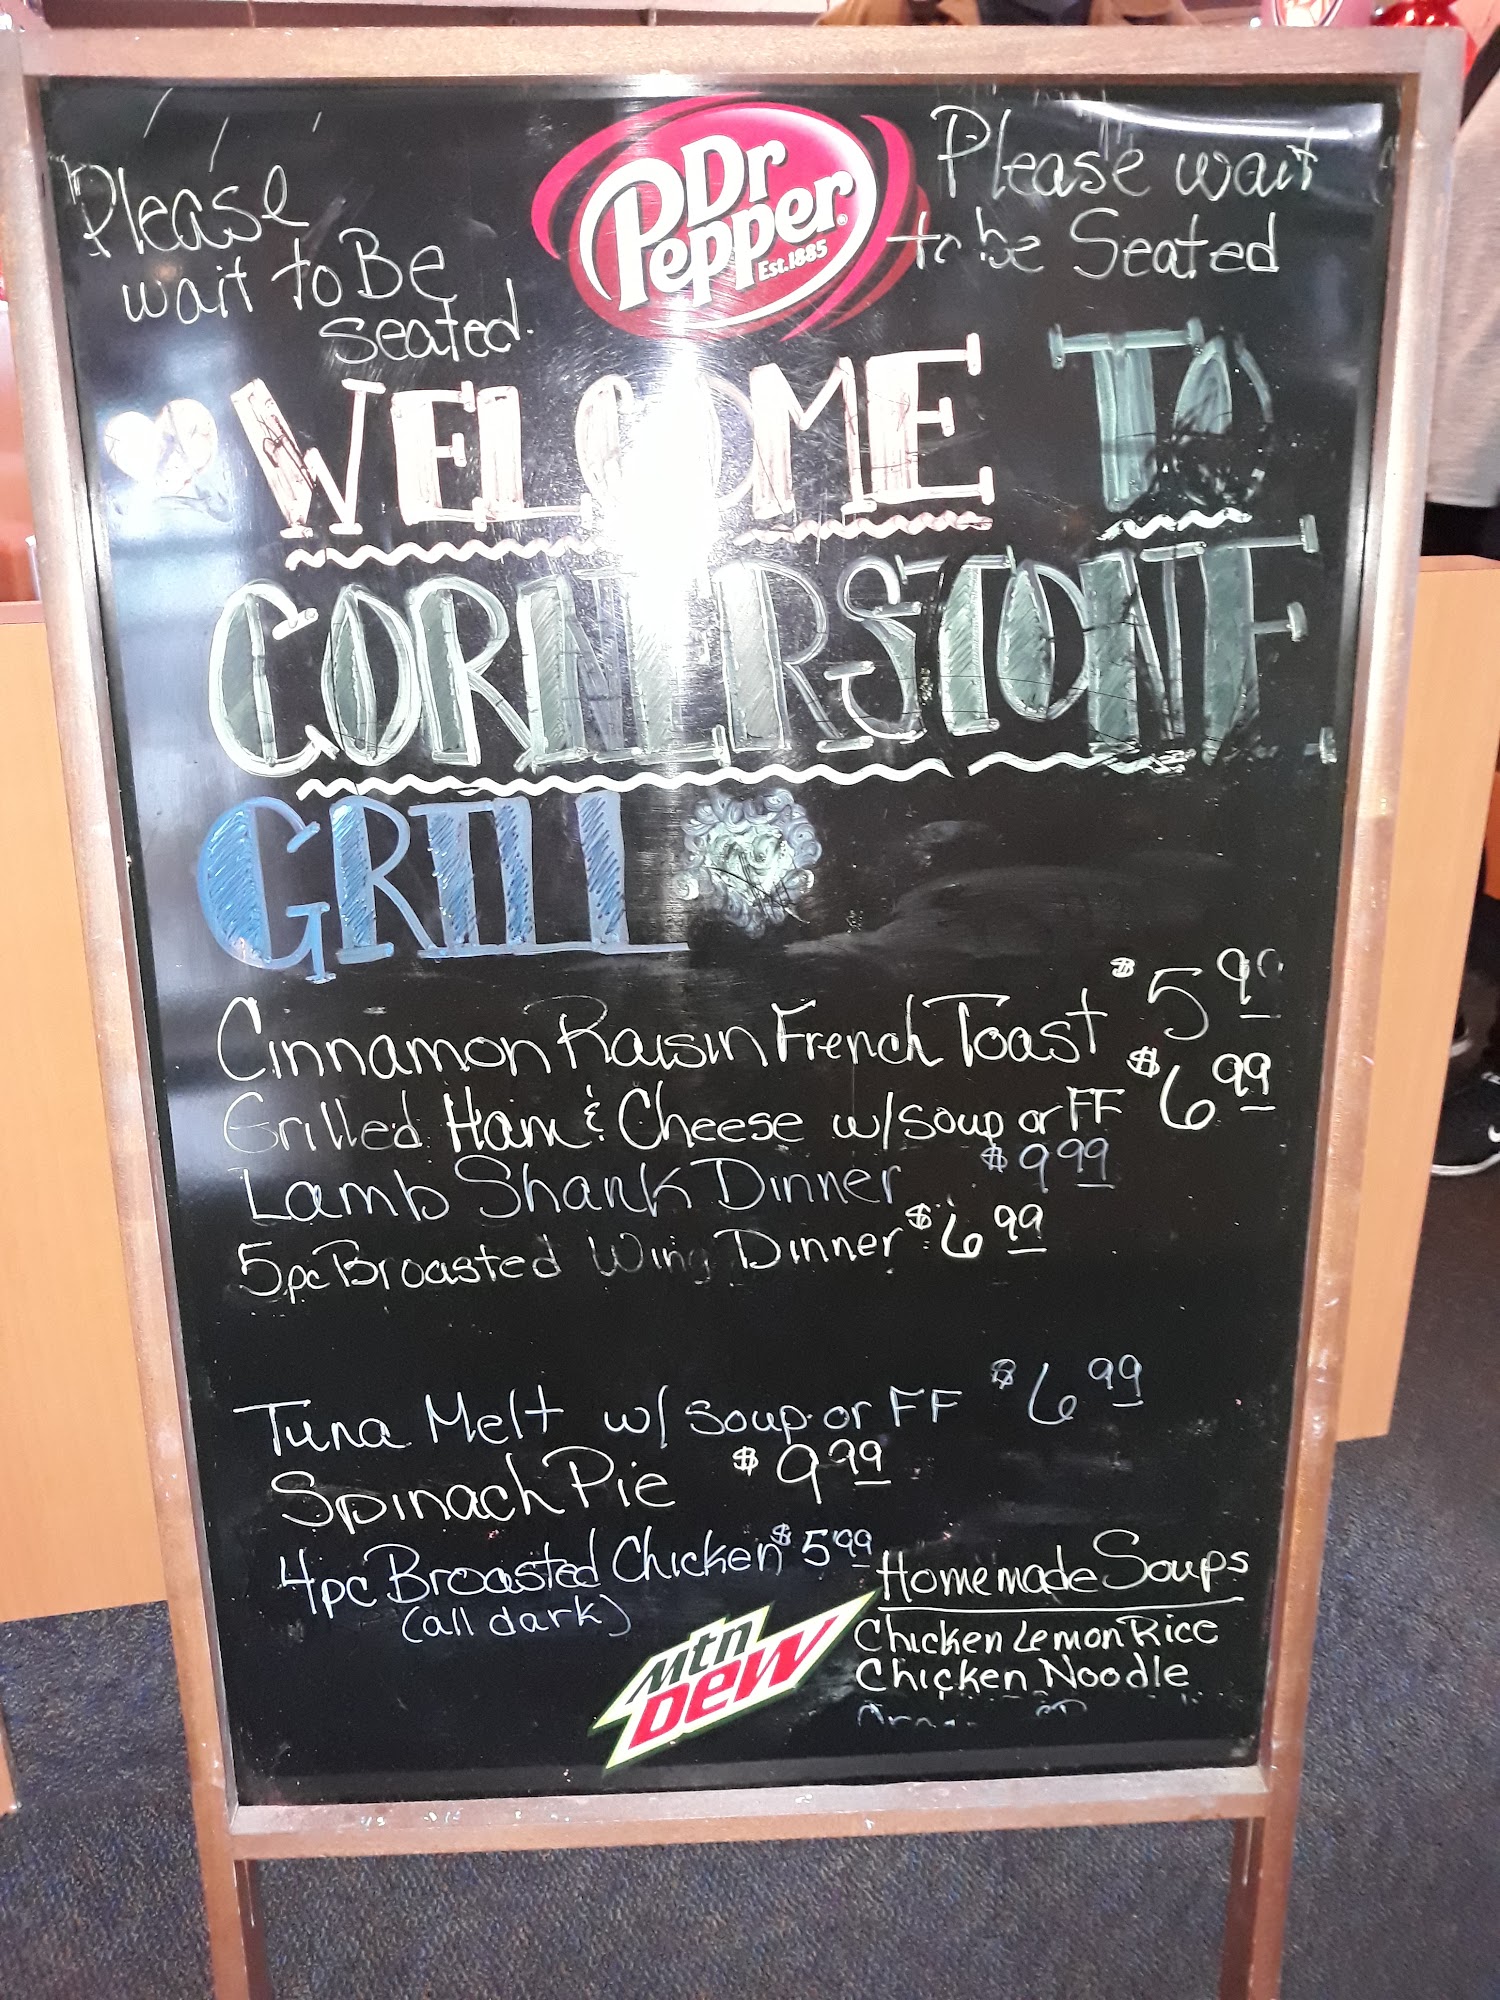 Please
wait to Be
seated.
Dr
Pepper
Est.1885
Please wait
to be Seated
WELCOME TO
CORNERSTONE
GRILL
Cinnamon Raisin French Toast $5.99
Grilled Ham & Cheese w/soup or FF $6.99
Lamb Shank Dinner $9.99
5pc Broasted Wing Dinner $6.99
Tuna Melt w/ soup or FF $6.99
Spinach Pie $9.99
4pc Broasted Chicken $5.99
(all dark)
Mtn
DEW
Homemade Soups
Chicken Lemon Rice
Chicken Noodle